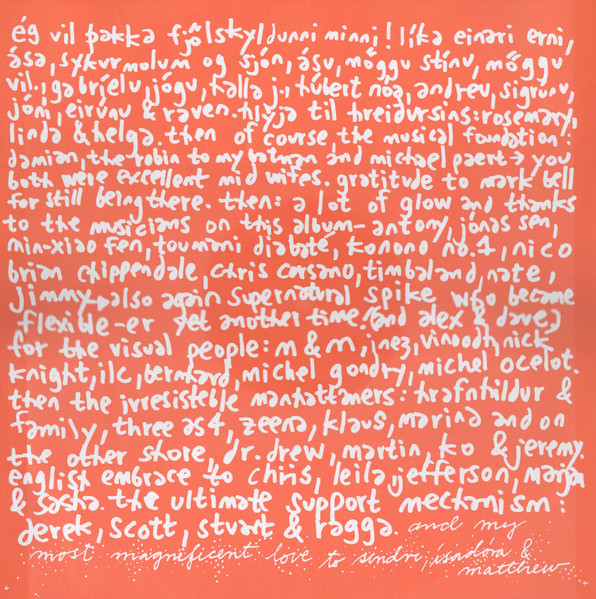 ég vil þakka fjölskyldunni minni! líka einari erni,
ása, sykurmolum og sjón, ásu, möggu stínu, möggu
vil., gabríelu, jógu, halla j., húbert nóa, andreu, sigrúnu,
jóni, eirúnu & raven. hlyja til hreidursins: rosemary,
linda & helga. then of course the musical foundation:
damian, the robin to my batman and michael paert → you
both were excellent mid wifes. gratitude to mark bell
for still being there. then: a lot of glow and thanks
to the musicians on this album - antony, jónas sen,
min-xiao fen, toumani diabaté, konono no.1, nico
brian chippendale, chris corsano, timbaland, nate,
jimmy → also again supernatural spike who became
flexible-er yet another time! (and alex & dave)
for the visual people: m & m, inez, vinoodh, nick
knight, ilc, bernhard, michel gondry, michel ocelot.
then the irresisteble manhattamers: hrafnhildur &
family, three as4, zeena, klaus, marina and on
the other shore, dr. drew, martin, ko & jeremy.
english embrace to chris, leila, jefferson, marjan
& sasha. the ultimate support mechanism:
derek, scott, stuart & ragga. and my
most magnificent love to sindri, ísadóra &
matthew